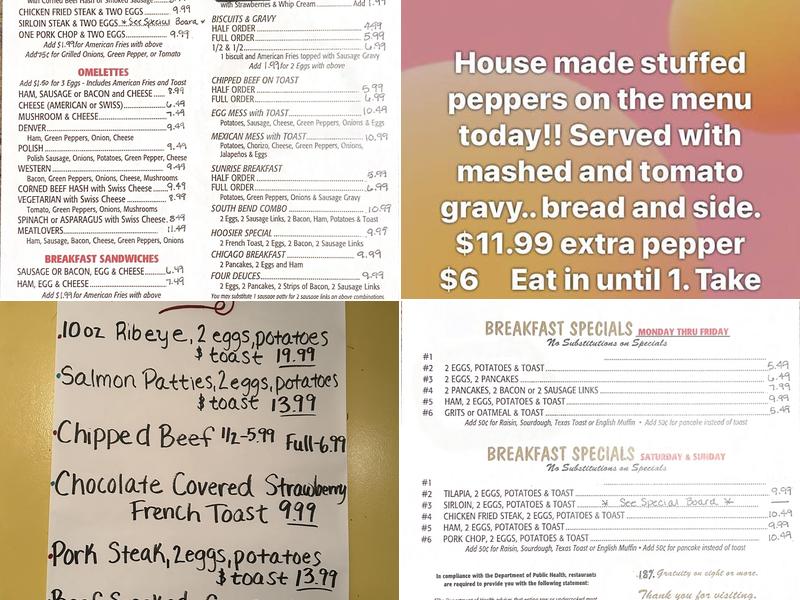 with Corned Beef Hash or Smoked Sausage
CHICKEN FRIED STEAK & TWO EGGS 9.99
SIRLOIN STEAK & TWO EGGS * See Special Board *
ONE PORK CHOP & TWO EGGS 9.99
Add $1.99 for American Fries with above
Add 75¢ for Grilled Onions, Green Pepper, or Tomato
OMELETTES
Add $1.50 for 3 Eggs - Includes American Fries and Toast
HAM, SAUSAGE or BACON and CHEESE 8.99
CHEESE (AMERICAN or SWISS) 6.49
MUSHROOM & CHEESE 7.49
DENVER 9.49
Ham, Green Pepper, Onion, Cheese
POLISH 9.49
Polish Sausage, Onions, Potatoes, Green Pepper, Cheese
WESTERN 9.49
Bacon, Green Pepper, Onions, Cheese, Mushrooms
CORNED BEEF HASH with Swiss Cheese 9.49
VEGETARIAN with Swiss Cheese 8.99
Tomato, Green Pepper, Onions, Mushrooms
SPINACH or ASPARAGUS with Swiss Cheese 8.49
MEATLOVERS 11.49
Ham, Sausage, Bacon, Cheese, Green Pepper, Onions
BREAKFAST SANDWICHES
SAUSAGE OR BACON, EGG & CHEESE 6.49
HAM, EGG & CHEESE 7.49
Add $1.99 for American Fries with above
with Strawberries & Whip Cream Add 1.99
BISCUITS & GRAVY
HALF ORDER 4.99
FULL ORDER 5.99
1/2 & 1/2 6.99
1 biscuit and American Fries topped with Sausage Gravy
Add 1.99 for 2 Eggs with above
CHIPPED BEEF ON TOAST
HALF ORDER 5.99
FULL ORDER 6.99
EGG MESS with TOAST 10.49
Potatoes, Sausage, Cheese, Green Pepper, Onions & Eggs
MEXICAN MESS with TOAST 10.99
Potatoes, Chorizo, Cheese, Green Pepper, Onions,
Jalapeños & Eggs
SUNRISE BREAKFAST
HALF ORDER 5.99
FULL ORDER 6.99
Potatoes, Green Pepper, Onions & Sausage Gravy
SOUTH BEND COMBO 10.99
2 Eggs, 2 Sausage Links, 2 Bacon, Ham, Potatoes & Toast
HOOSIER SPECIAL 9.99
2 French Toast, 2 Eggs, 2 Bacon, 2 Sausage Links
CHICAGO BREAKFAST 9.99
2 Pancakes, 2 Eggs and Ham
FOUR DEUCES 9.99
2 Eggs, 2 Pancakes, 2 Strips of Bacon, 2 Sausage Links
You may substitute 1 sausage patty for 2 sausage links on above combinations
House made stuffed
peppers on the menu
today!! Served with
mashed and tomato
gravy.. bread and side.
$11.99 extra pepper
$6 Eat in until 1. Take
.10oz Ribeye, 2 eggs, potatoes
$ toast 19.99
.Salmon Patties, 2eggs, potatoes
$ toast 13.99
.Chipped Beef 1/2-5.99 Full-6.99
.Chocolate Covered Strawberry
French Toast 9.99
.Pork Steak, 2eggs, potatoes
$ toast 13.99
BREAKFAST SPECIALS MONDAY THRU FRIDAY
No Substitutions on Specials
#1
#2 2 EGGS, POTATOES & TOAST 5.49
#3 2 EGGS, 2 PANCAKES 6.49
#4 2 PANCAKES, 2 BACON or 2 SAUSAGE LINKS 7.99
#5 HAM, 2 EGGS, POTATOES & TOAST 9.99
#6 GRITS or OATMEAL & TOAST 5.49
Add 50¢ for Raisin, Sourdough, Texas Toast or English Muffin • Add 50¢ for pancake instead of toast
BREAKFAST SPECIALS SATURDAY & SUNDAY
No Substitutions on Specials
#1
#2 TILAPIA, 2 EGGS, POTATOES & TOAST 9.99
#3 SIRLOIN, 2 EGGS, POTATOES & TOAST * See Special Board *
#4 CHICKEN FRIED STEAK, 2 EGGS, POTATOES & TOAST 10.49
#5 HAM, 2 EGGS, POTATOES & TOAST 9.99
#6 PORK CHOP, 2 EGGS, POTATOES & TOAST 10.49
Add 50¢ for Raisin, Sourdough, Texas Toast or English Muffin • Add 50¢ for pancake instead of toast
In compliance with the Department of Public Health, restaurants
are required to provide you with the following statement:
18% Gratuity on eight or more.
Thank you for visiting.